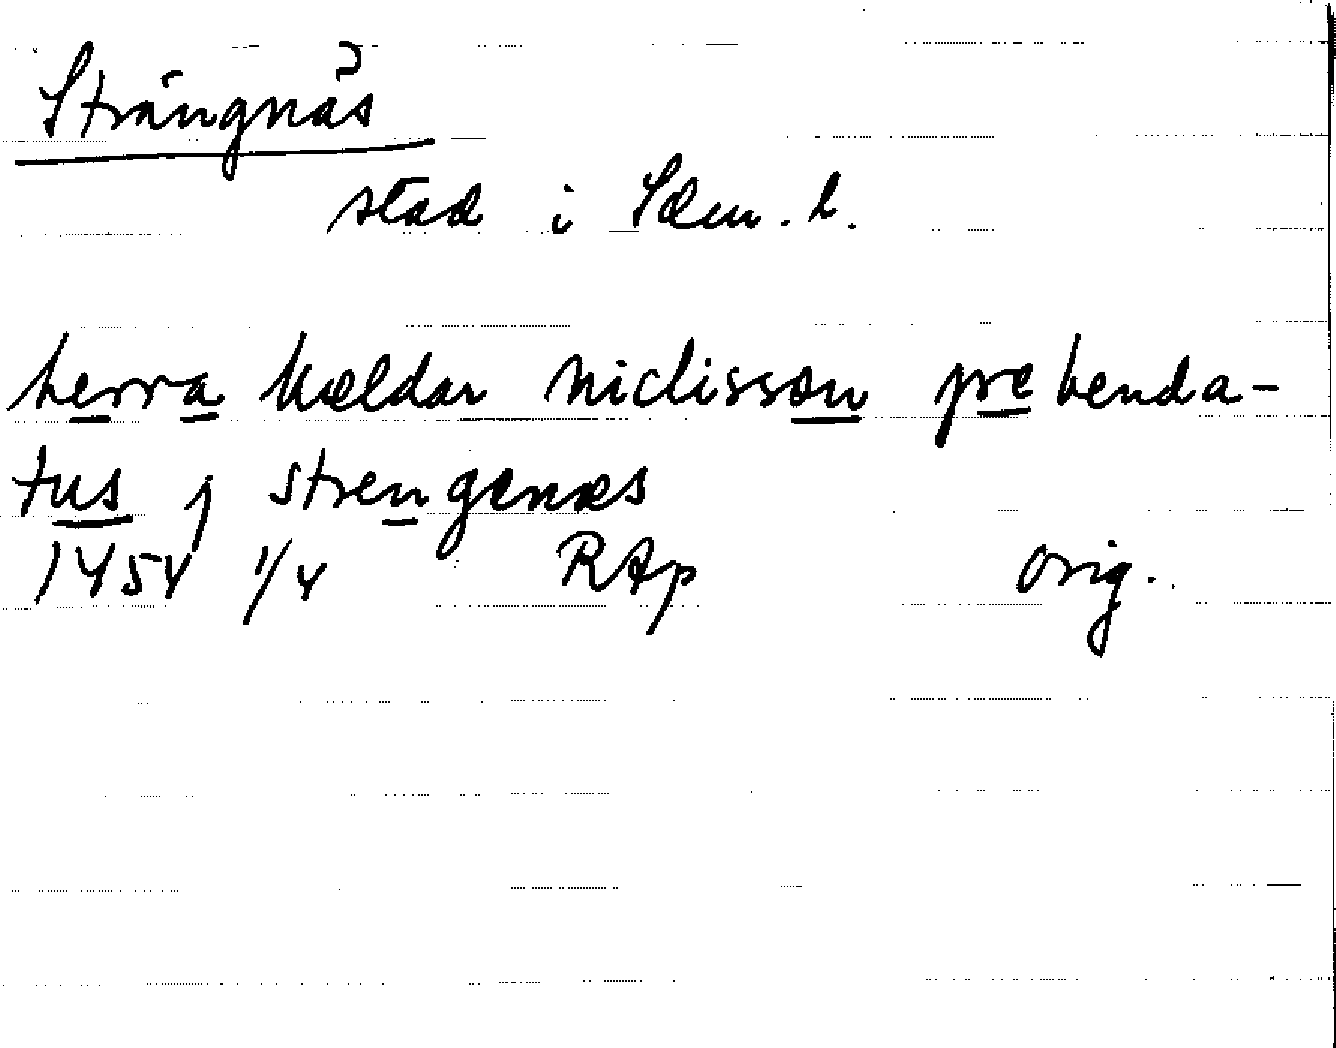 Strängnäs
stad i Sdm. l.
herra kældar niclisson prebenda-
tus j strengenæs
1454 1/4 RAp orig.